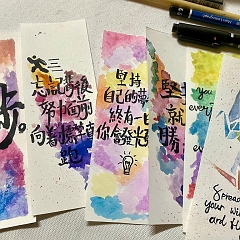 步。
忘記背後
努力面前
向着標竿直
跑
堅持
自己的夢
終有一日
你會發光
堅
就
勝
you
every
Spread
your wings
and fl